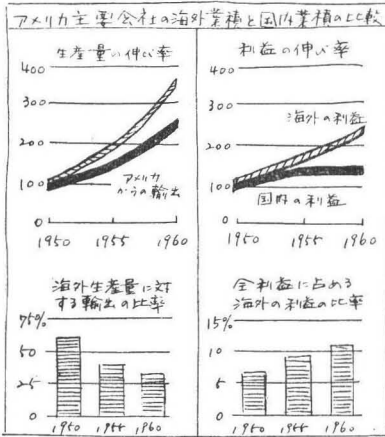 アメリカ主要会社の海外業績と国内業績の比較
生産量の伸び率
400
300
200
100
0
アメリカ
からの輸出
1950 1955 1960
利益の伸び率
400
300
200
100
0
海外の利益
国内の利益
1950 1955 1960
海外生産量に対
する輸出の比率
75%
50
25
0
1950 1955 1960
全利益に占める
海外の利益の比率
15%
10
5
0
1950 1955 1960